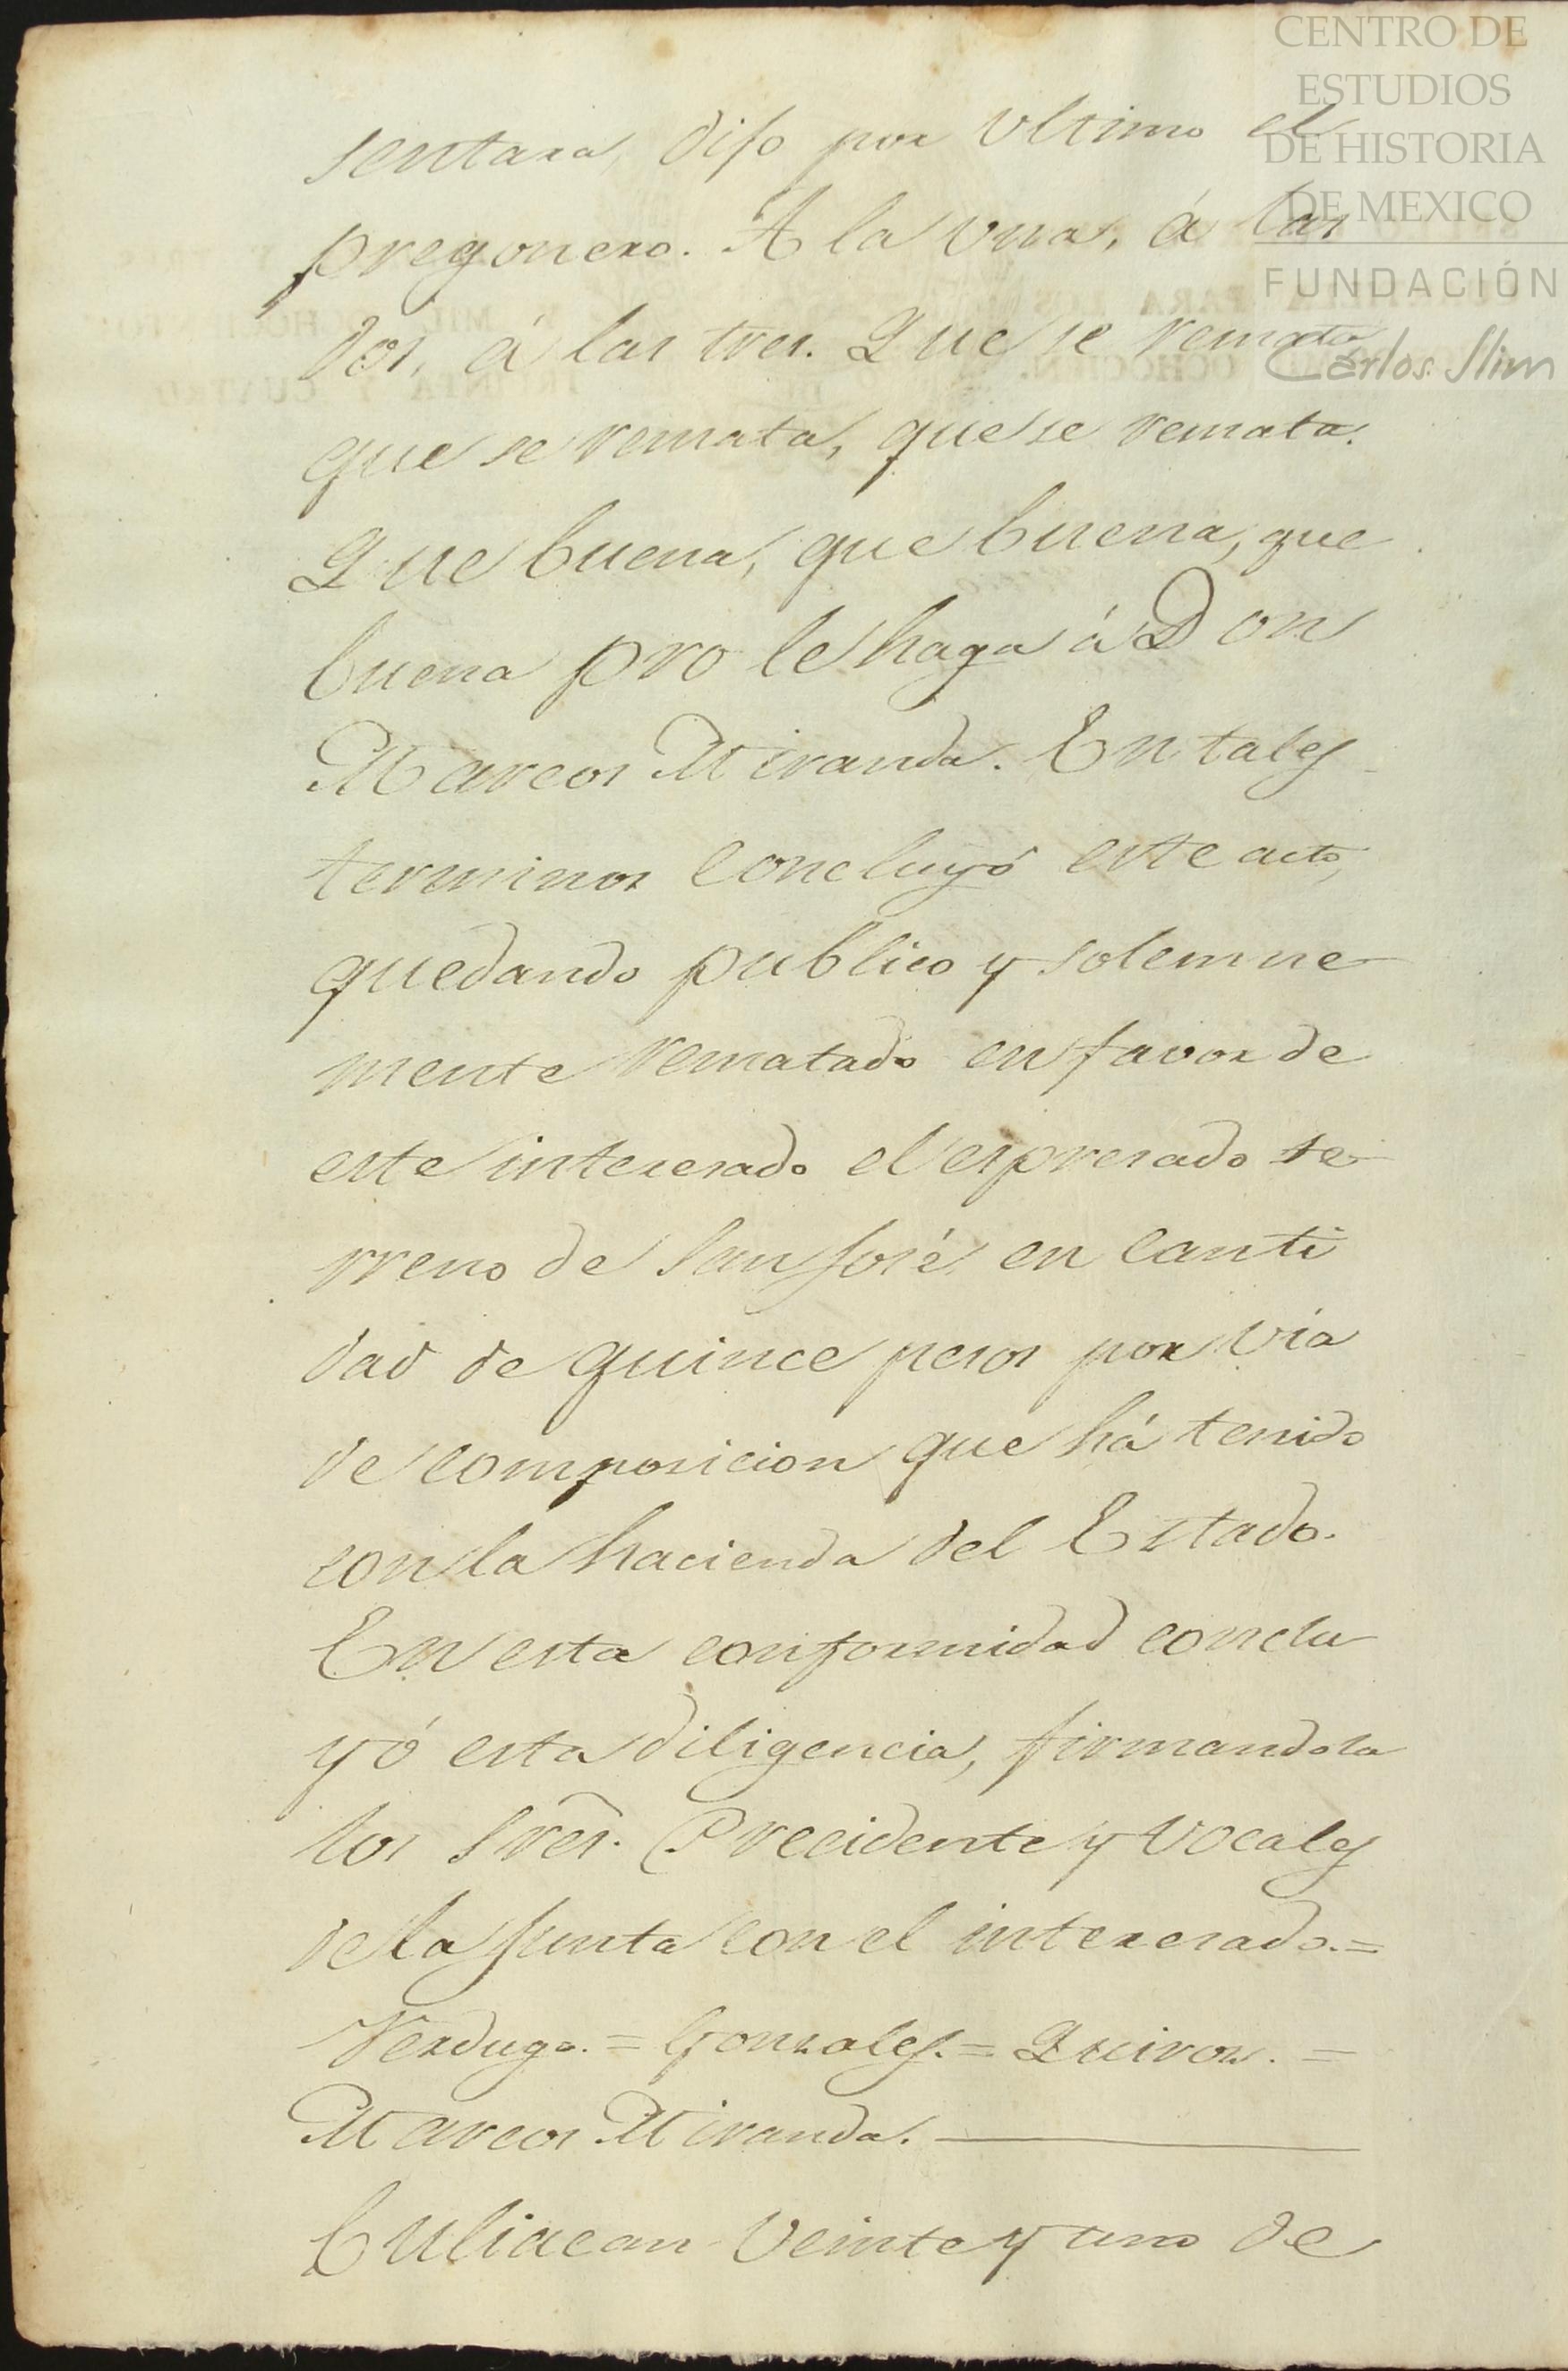 sentara, dijo por Ultimo el
pregonero. A la vna, á las
dos, á las tres. Que se remata
que se remata, que se remata.
Que buena, que buena, que
buena pro le haga á Don
Marcos Miranda. En tales
terminos concluyó este acto,
quedando publico y solemne
mente rematado en favor de
este interesado el espresado te-
rreno de San José, en canti
dad de quince pesos por via
de composicion que há tenido
con la hacienda del Estado.
En esta conformidad conclu
yó esta diligencia, firmandola
los Sres. Precidente y vocales
de la Junta con el interesado. =
Verdugo. = Gonzales. = Quiros. =
Marcos Miranda.
Culiacan veinte y uno de
CENTRO DE
ESTUDIOS
DE HISTORIA
DE MEXICO
FUNDACIÓN
Carlos Slim